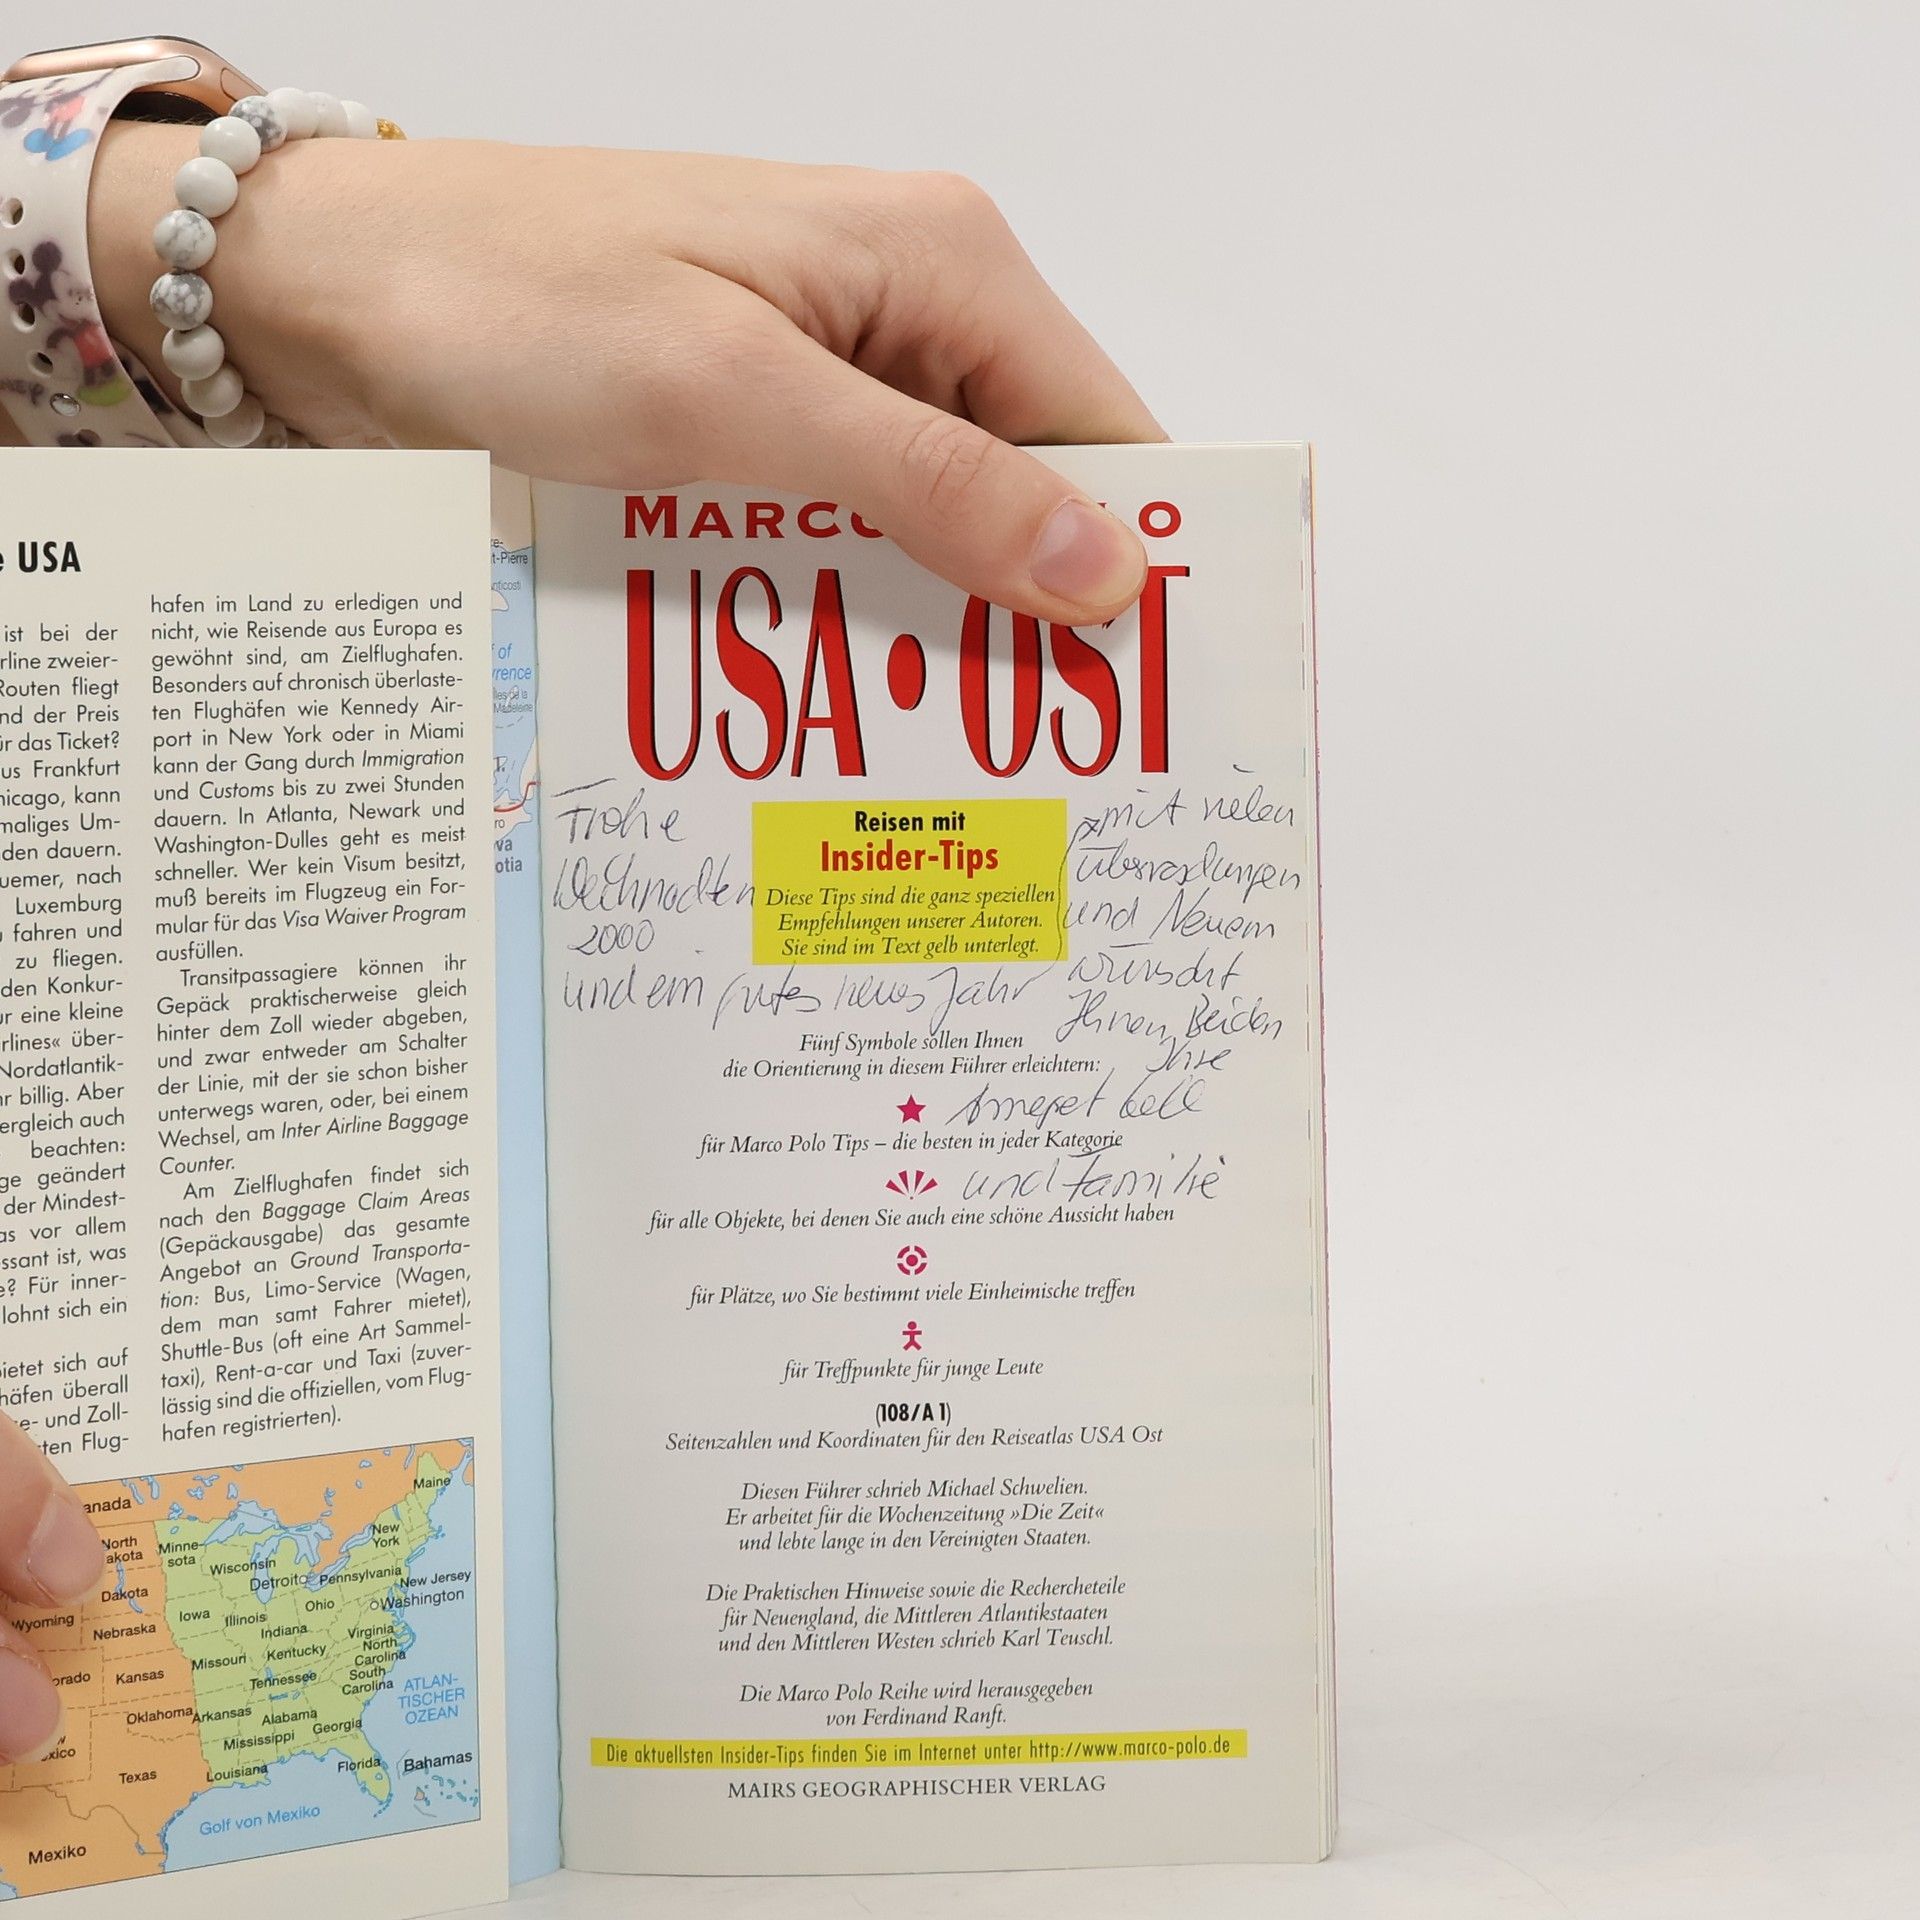 USA
ist bei der
zweier-
Routen fliegt
der Preis
das Ticket?
Frankfurt
kann
maliges Um-
den dauern.
nach
Luxemburg
fahren und
zu fliegen.
den Konkur-
eine kleine
über-
Nordatlantik-
billig. Aber
auch
beachten:
geändert
der Mindest-
vor allem
ist, was
Für inner-
lohnt sich ein
sich auf
überall
und Zoll-
Flug-
hafen im Land zu erledigen und
nicht, wie Reisende aus Europa es
gewöhnt sind, am Zielflughafen.
Besonders auf chronisch überlaste-
ten Flughäfen wie Kennedy Air-
port in New York oder in Miami
kann der Gang durch Immigration
und Customs bis zu zwei Stunden
dauern. In Atlanta, Newark und
Washington-Dulles geht es meist
schneller. Wer kein Visum besitzt,
muß bereits im Flugzeug ein For-
mular für das Visa Waiver Program
ausfüllen.
Transitpassagiere können ihr
Gepäck praktischerweise gleich
hinter dem Zoll wieder abgeben,
und zwar entweder am Schalter
der Linie, mit der sie schon bisher
unterwegs waren, oder, bei einem
Wechsel, am Inter Airline Baggage
Counter.
Am Zielflughafen findet sich
nach den Baggage Claim Areas
(Gepäckausgabe) das gesamte
Angebot an Ground Transporta-
tion: Bus, Limo-Service (Wagen,
dem man samt Fahrer mietet),
Shuttle-Bus (oft eine Art Sammel-
taxi), Rent-a-car und Taxi (zuver-
lässig sind die offiziellen, vom Flug-
hafen registrierten).
Maine
North
New
York
Minne-
sota
Wisconsin
Detroit
Pennsylvania
New Jersey
Washington
Dakota
Wyoming
Iowa
Illinois
Ohio
Indiana
Nebraska
Virginia
North
Carolina
Missouri
Kentucky
Kansas
Tennessee
South
Carolina
ATLAN-
TISCHER
OZEAN
Oklahoma
Arkansas
Alabama
Georgia
Mississippi
Texas
Louisiana
Florida
Bahamas
Golf von Mexiko
Mexiko
MARCO
USA • OST
Frohe
Weihnachten
2000
und ein gutes neues Jahr
mit vielen
Überraschungen
und Neuem
wünscht
Ihnen Beiden
Ihre
und Familie
Reisen mit
Insider-Tips
Diese Tips sind die ganz speziellen
Empfehlungen unserer Autoren.
Sie sind im Text gelb unterlegt.
Fünf Symbole sollen Ihnen
die Orientierung in diesem Führer erleichtern:
für Marco Polo Tips – die besten in jeder Kategorie
für alle Objekte, bei denen Sie auch eine schöne Aussicht haben
für Plätze, wo Sie bestimmt viele Einheimische treffen
für Treffpunkte für junge Leute
(108/A 1)
Seitenzahlen und Koordinaten für den Reiseatlas USA Ost
Diesen Führer schrieb Michael Schwelien.
Er arbeitet für die Wochenzeitung »Die Zeit«
und lebte lange in den Vereinigten Staaten.
Die Praktischen Hinweise sowie die Rechercheteile
für Neuengland, die Mittleren Atlantikstaaten
und den Mittleren Westen schrieb Karl Teuschl.
Die Marco Polo Reihe wird herausgegeben
von Ferdinand Ranft.
Die aktuellsten Insider-Tips finden Sie im Internet unter http://www.marco-polo.de
MAIRS GEOGRAPHISCHER VERLAG